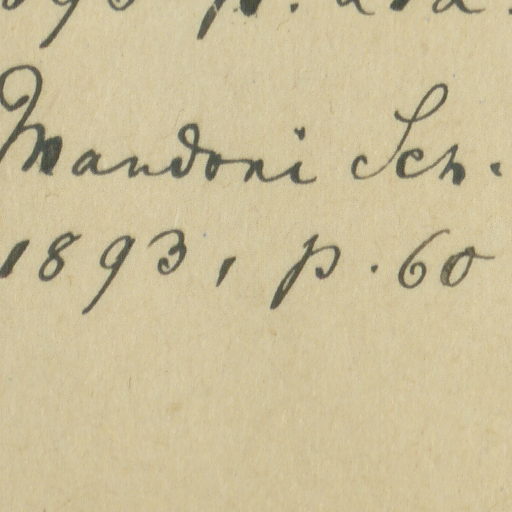 Mandoni Sch.
1893, p. 60